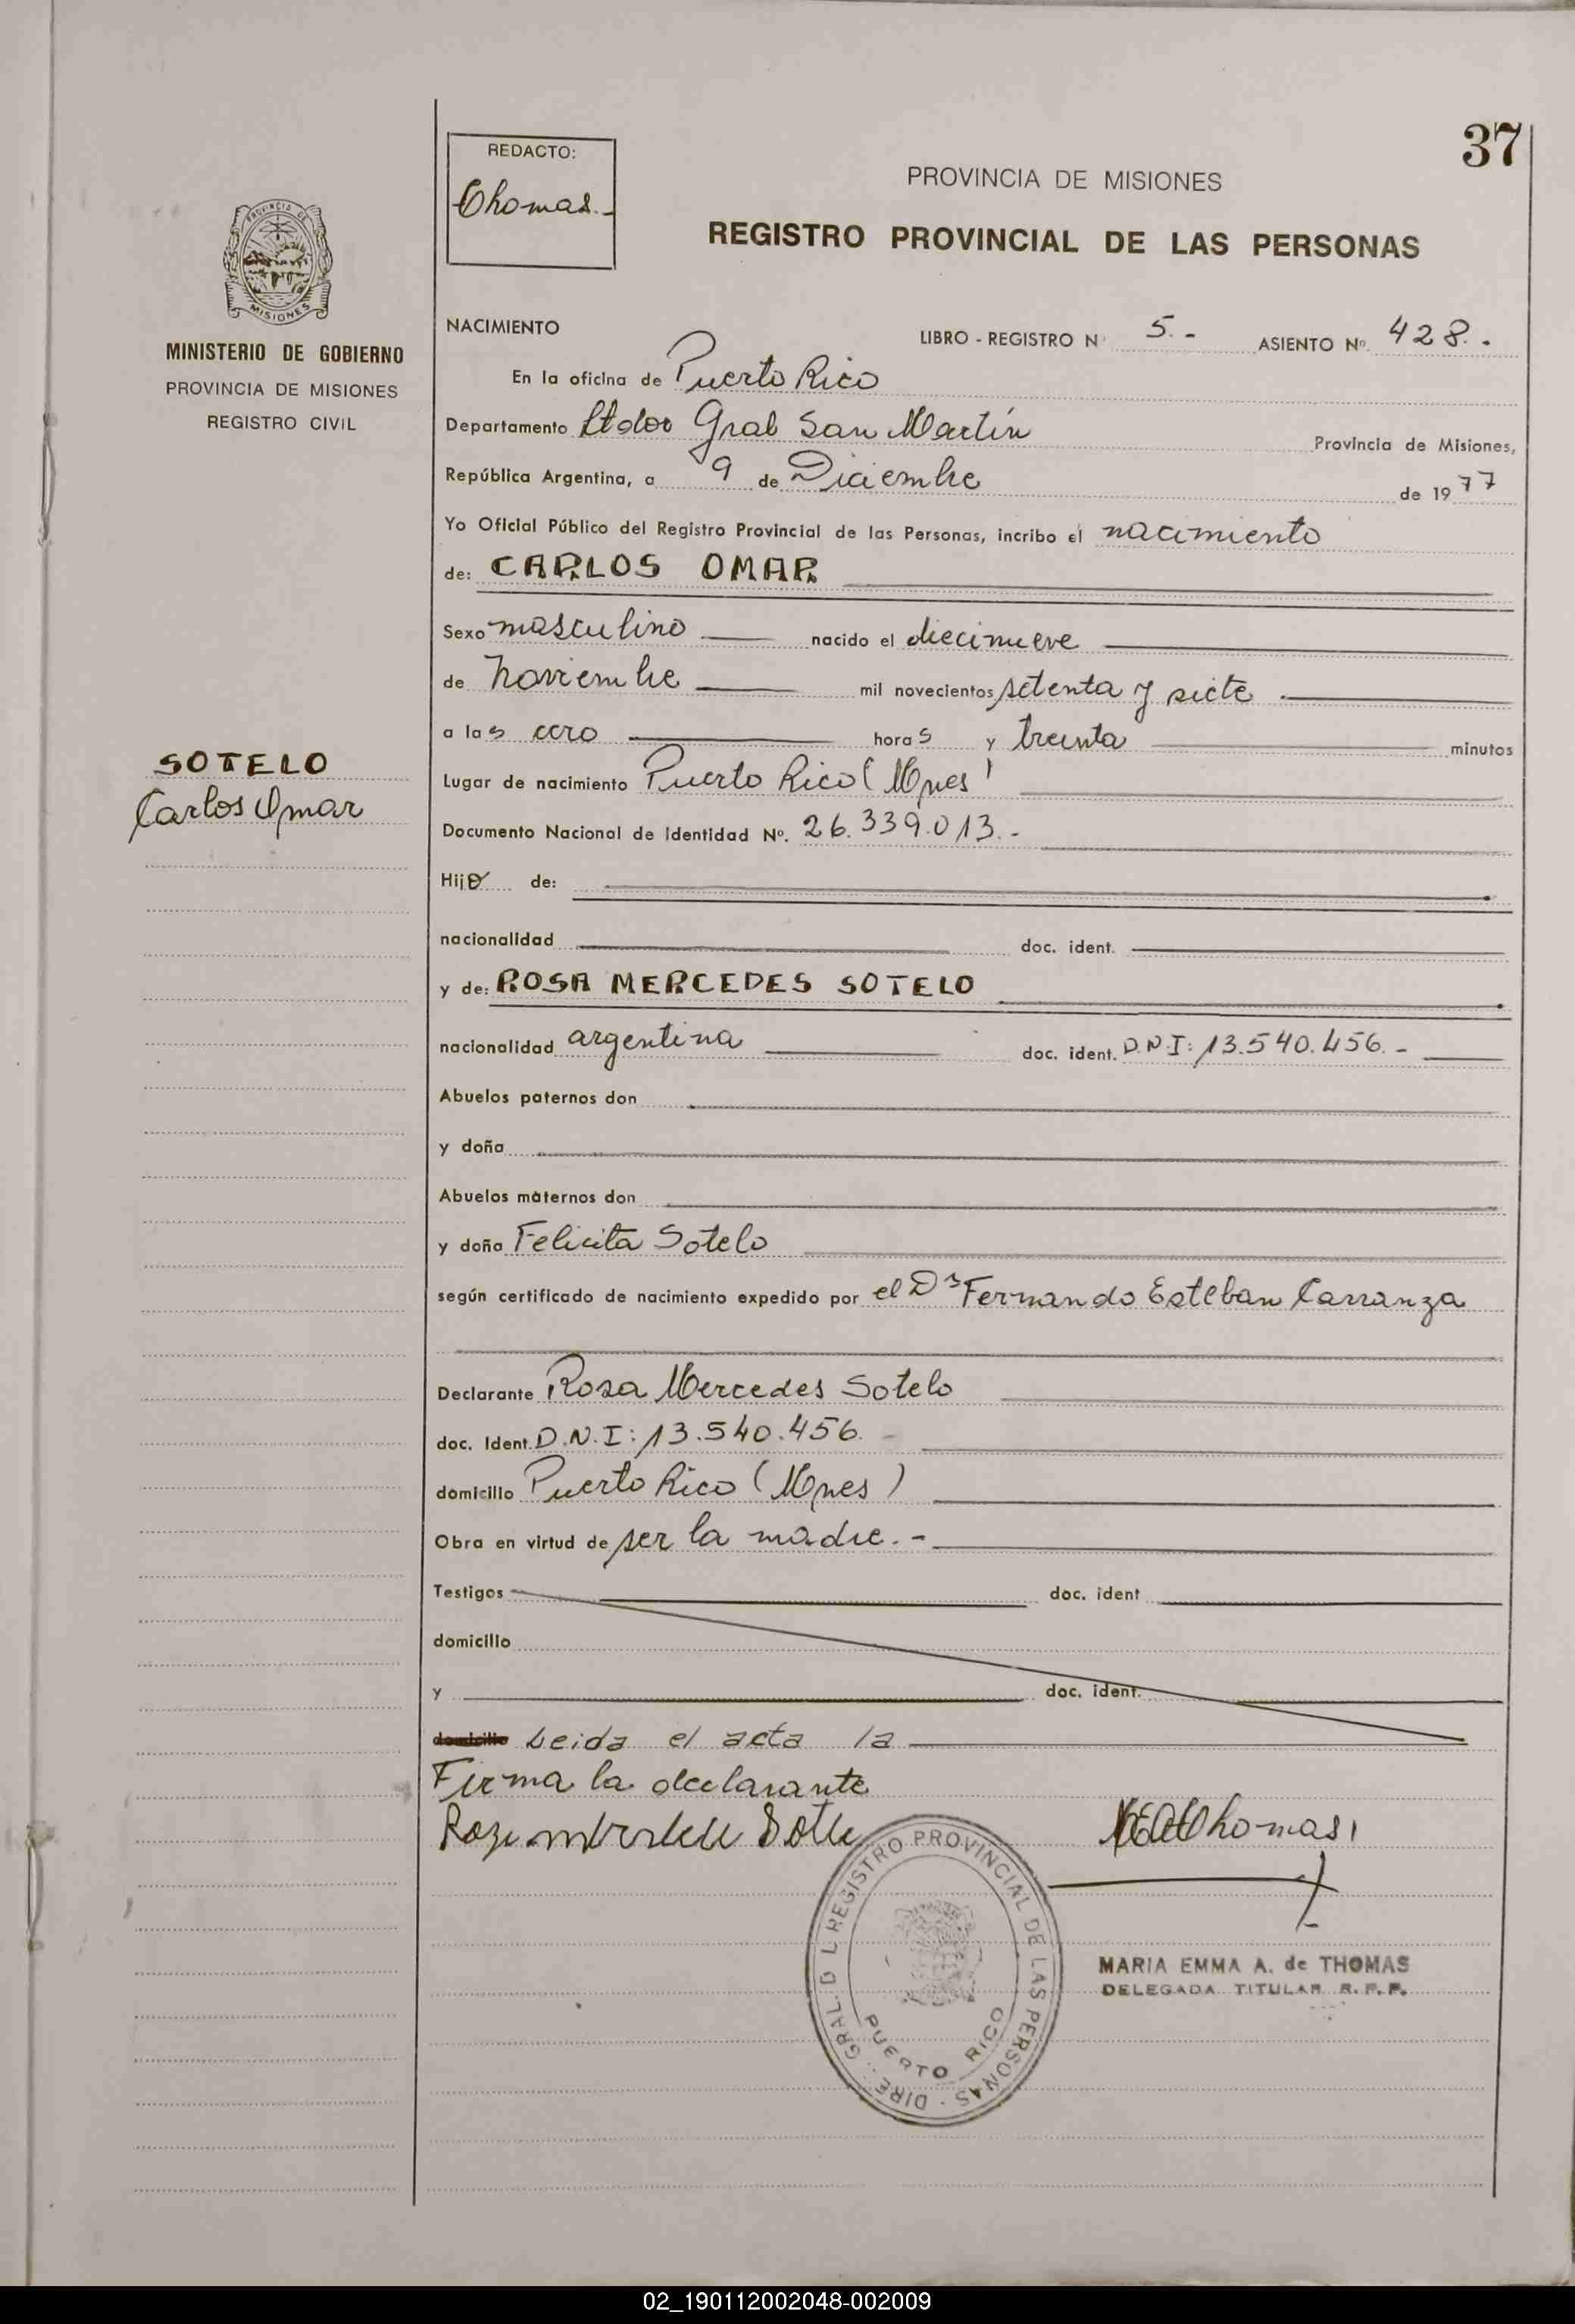 37
REDACTO:
Thomas.-
PROVINCIA DE MISIONES
REGISTRO PROVINCIAL DE LAS PERSONAS
PROVINCIA DE
MISIONES
MINISTERIO DE GOBIERNO
PROVINCIA DE MISIONES
REGISTRO CIVIL
SOTELO
Carlos Omar
NACIMIENTO LIBRO - REGISTRO Nº 5.- ASIENTO Nº. 428.-
En la oficina de Puerto Rico
Departamento Ltdor Gral San Martín Provincia de Misiones,
República Argentina, a 9 de Diciembre de 1977
Yo Oficial Público del Registro Provincial de las Personas, incribo el nacimiento
de: CARLOS OMAR
Sexo masculino nacido el diecinueve
de noviembre mil novecientos setenta y siete
a las cero horas y treinta minutos
Lugar de nacimiento Puerto Rico (Mnes)
Documento Nacional de Identidad Nº. 26.339.013.-
Hijo de:
nacionalidad doc. ident.
y de: ROSA MERCEDES SOTELO
nacionalidad argentina doc. ident. D.N.I: 13.540.456.-
Abuelos paternos don
y doña
Abuelos maternos don
y doña Felicita Sotelo
según certificado de nacimiento expedido por el Dr Fernando Esteban Carranza
Declarante Rosa Mercedes Sotelo
doc. Ident. D.N.I: 13.540.456.-
domicilio Puerto Rico (Mnes)
Obra en virtud de ser la madre.-
Testigos doc. ident
domicilio
y doc. ident.
domicilio Leida el acta la
Firma la declarante
Thomas
MARIA EMMA A. de THOMAS
DELEGADA TITULAR R.P.P.
DIRE. GRAL. D L REGISTRO PROVINCIAL DE LAS PERSONAS
PUERTO RICO
02_190112002048-002009